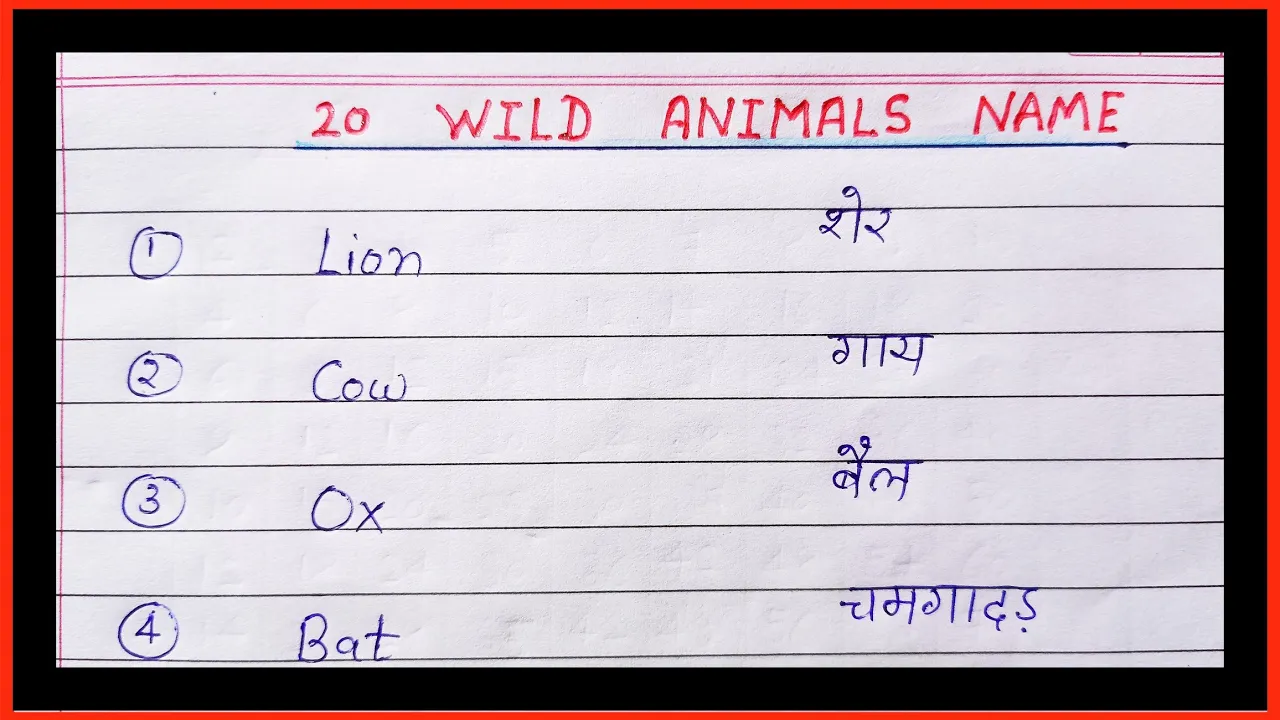 20 WILD ANIMALS NAME
1 Lion शेर
2 Cow गाय
3 Ox बैल
4 Bat चमगादड़